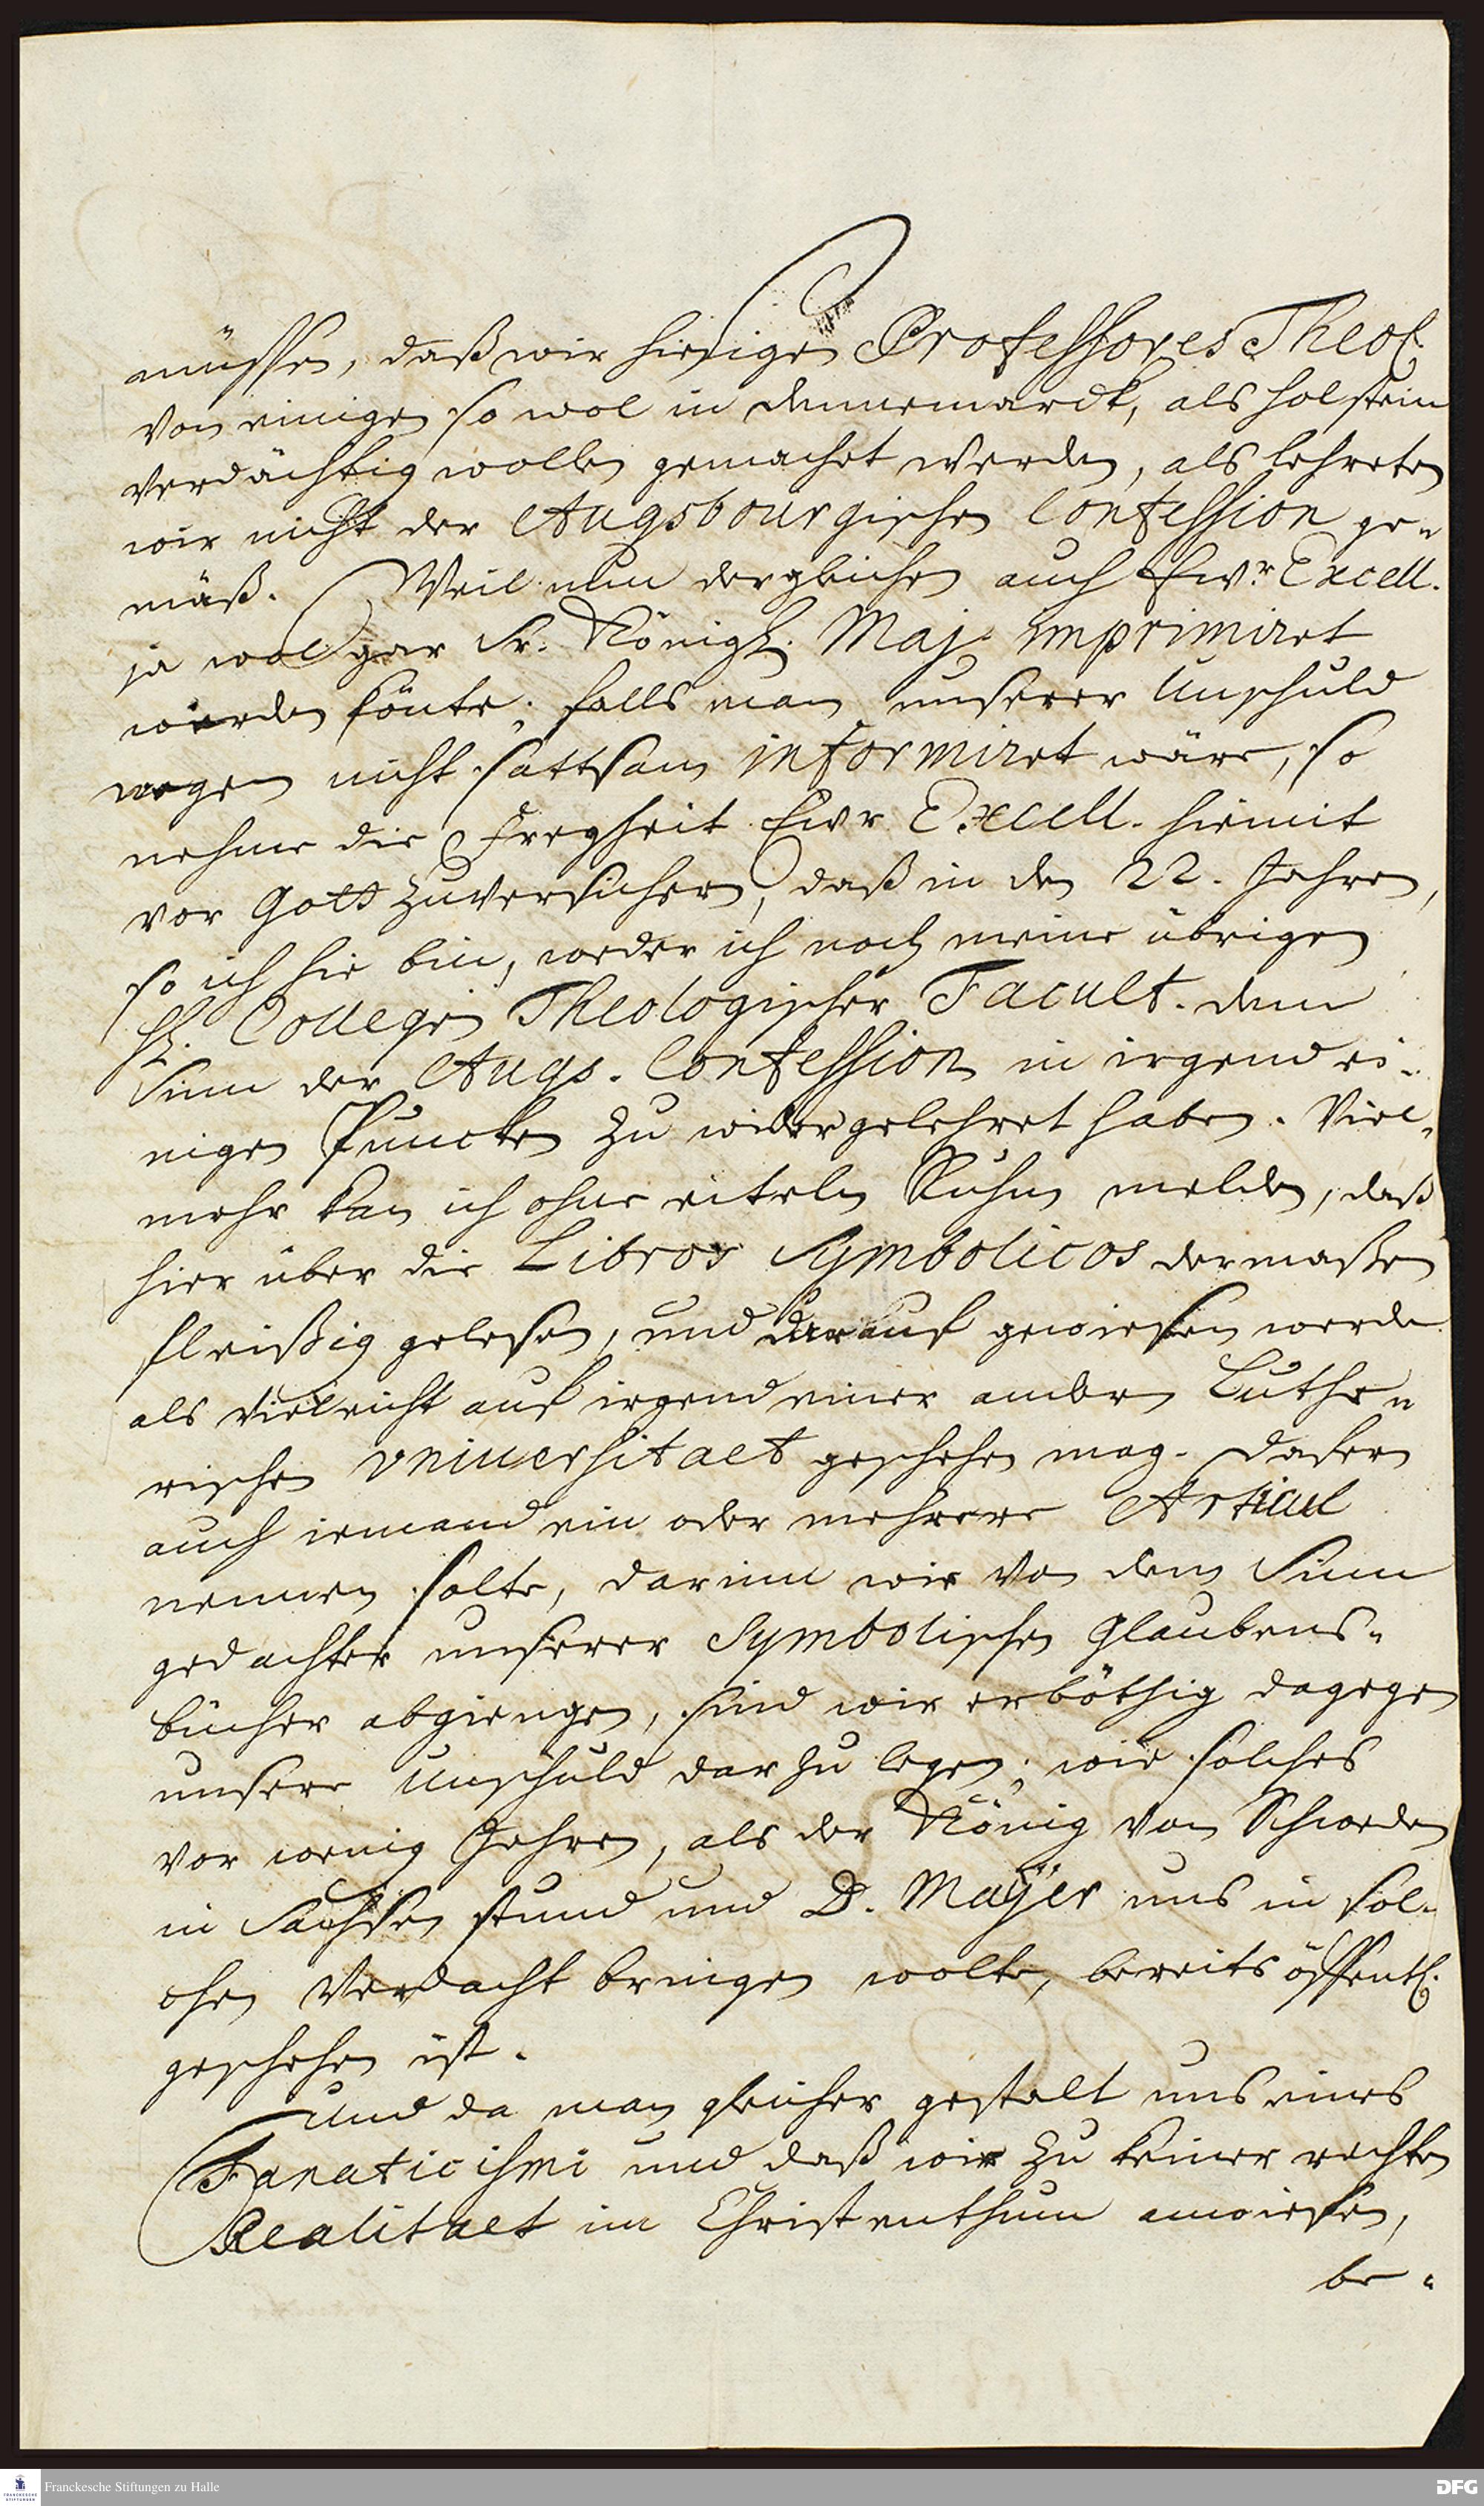 müssen, daß wir hiesigen Professores Theol.
von einigen so wol in Dennemarck, als Holstein
verdächtig wollen gemachet werden, als lehreten
wir nicht der Augsbourgischen Confession ge-
mäß. Weil nun dergleichen auch Ewr Excell.
ja wol gar Sr. Königl. Maj. imprimiret
werden könte; falls man unserer Unschuld
wegen nicht sattsam informiret wäre, so
nehme die Freyheit Ewr Excell. hiemit
vor Gott zuversichern, daß in den 22. Jahren,
so ich hie bin, weder ich noch meine übrigen
H. Collegen Theologischer Facult. dem
Sinn der Augs. Confession in irgend ei-
nigen Puncten zu wider gelehret haben. Viel-
mehr kan ich ohne eiteln Ruhm melden, daß
hier über die Libros Symbolicos dermaßen
fleißig gelesen, und darauf gewiesen werde
als vieleicht auf irgend einer andern Luthe-
rischen Vniuersitaet geschehen mag. Dafern
auch iemand ein oder mehrere Articul
nennen solte, darinn wir von dem Sinn
gedachter unserer Symbolischen Glaubens-
bücher abgiengen, sind wir erböthig dagegen
unsere Unschuld dar zu legen; wie solches
vor wenig Jahren, als der König von Schweden
in Sachsen stund und D. Mayer uns in sol-
chen Verdacht bringen wolte, bereits öffentl.
geschehen ist.
Und da man gleicher gestalt uns eines
Fanaticismi und daß wir zu keiner rechten
Realitaet im Christenthum anwiesen,
be-
Franckesche Stiftungen zu Halle
FRANCKESCHE STIFTUNGEN
DFG